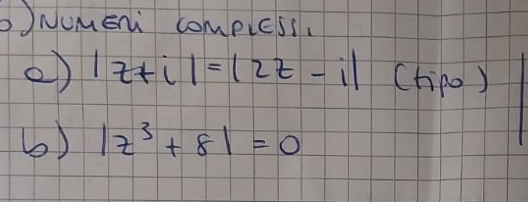 b) NUMERI COMPLESSI
a) |z+i| = |2z - i| (tipo)
b) |z³ + 8| = 0